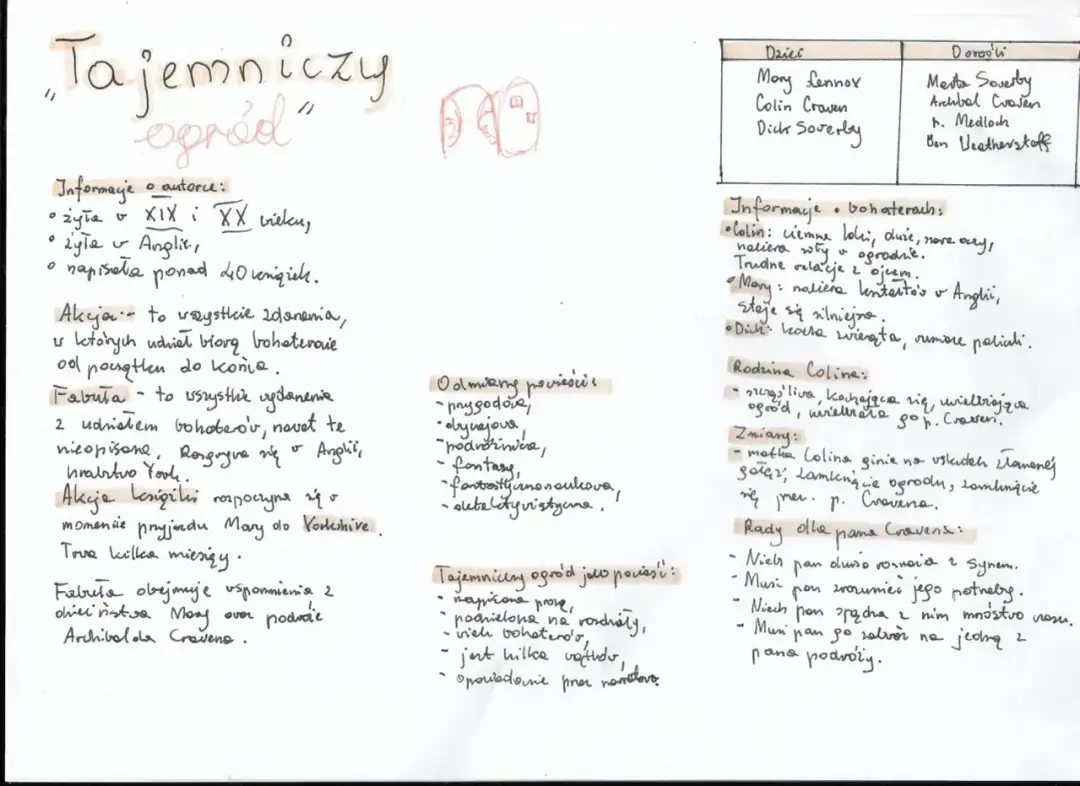 „Tajemniczy
ogród”
Informacje o autorce:
• żyła w XIX i XX wieku,
• żyła w Anglii,
• napisała ponad 40 książek.
Akcja - to wszystkie zdarzenia,
w których udział biorą bohaterowie
od początku do końca.
Fabuła - to wszystkie wydarzenia
z udziałem bohaterów, nawet te
nieopisane. Rozgrywa się w Anglii,
hrabstwo York.
Akcja książki rozpoczyna się w
momencie przyjazdu Mary do Yorkshire.
Trwa kilka miesięcy.
Fabuła obejmuje wspomnienia z
dzieciństwa Mary oraz podróże
Archibalda Cravena.
Odmiany powieści:
- przygodowa,
- obyczajowa,
- podróżnicza,
- fantasy,
- fantastycznonaukowa,
- detektywistyczna.
Tajemniczy ogród jako powieść:
- napisana prozą,
- podzielona na rozdziały,
- wielu bohaterów,
- jest kilka wątków,
- opowiadanie przez narratora.
Dzieci Dorośli
Mary Lennox Marta Soverby
Colin Craven Archibal Craven
Dick Soverby p. Medloch
Ben Weatherstaff
Informacje o bohaterach:
• Colin: ciemne loki, duże, szare oczy,
nabiera siły w ogrodzie.
Trudne relacje z ojcem.
• Mary: nabiera kształtów w Anglii,
staje się silniejsza.
• Dick: kocha zwierzęta, rumiane policzki.
Rodzina Colina:
- szczęśliwa, kochająca się, uwielbiająca
ogród, uwielbiała go p. Craven.
Zmiany:
- matka Colina ginie na wskutek złamanej
gałęzi, zamknięcie ogrodu, zamknięcie
się przez p. Cravena.
Rady dla pana Cravena:
- Niech pan dużo rozmawia z synem.
- Musi pan zrozumieć jego potrzeby.
- Niech pan spędza z nim mnóstwo czasu.
- Musi pan go zabrać na jedną z
pana podróży.